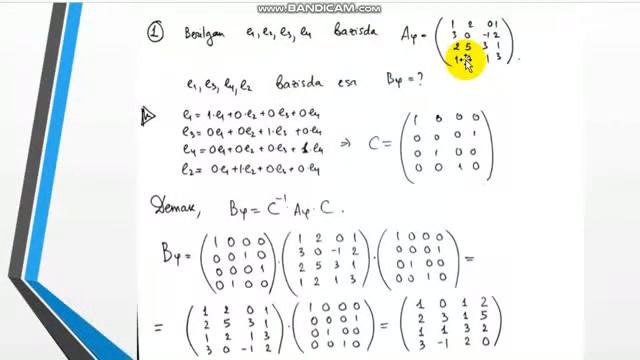 www.BANDICAM.com
① Berilgan e₁, e₂, e₃, e₄ bazisda Aφ = ( 1 2 0 1
3 0 -1 2
2 5 3 1
1 2 1 3 ) .
e₁, e₃, e₄, e₂ bazisda esa Bφ = ?
e₁ = 1·e₁ + 0·e₂ + 0e₃ + 0·e₄
e₃ = 0e₁ + 0e₂ + 1·e₃ + 0e₄
e₄ = 0e₁ + 0e₂ + 0e₃ + 1·e₄
e₂ = 0e₁ + 1·e₂ + 0e₃ + 0·e₄
⇒ C = ( 1 0 0 0
0 0 0 1
0 1 0 0
0 0 1 0 )
Demak, Bφ = C⁻¹ Aφ C.
Bφ = ( 1 0 0 0
0 0 1 0
0 0 0 1
0 1 0 0 ) · ( 1 2 0 1
3 0 -1 2
2 5 3 1
1 2 1 3 ) · ( 1 0 0 0
0 0 0 1
0 1 0 0
0 0 1 0 ) =
= ( 1 2 0 1
2 5 3 1
1 2 1 3
3 0 -1 2 ) · ( 1 0 0 0
0 0 0 1
0 1 0 0
0 0 1 0 ) = ( 1 0 1 2
2 3 1 5
1 1 3 2
3 -1 2 0 )